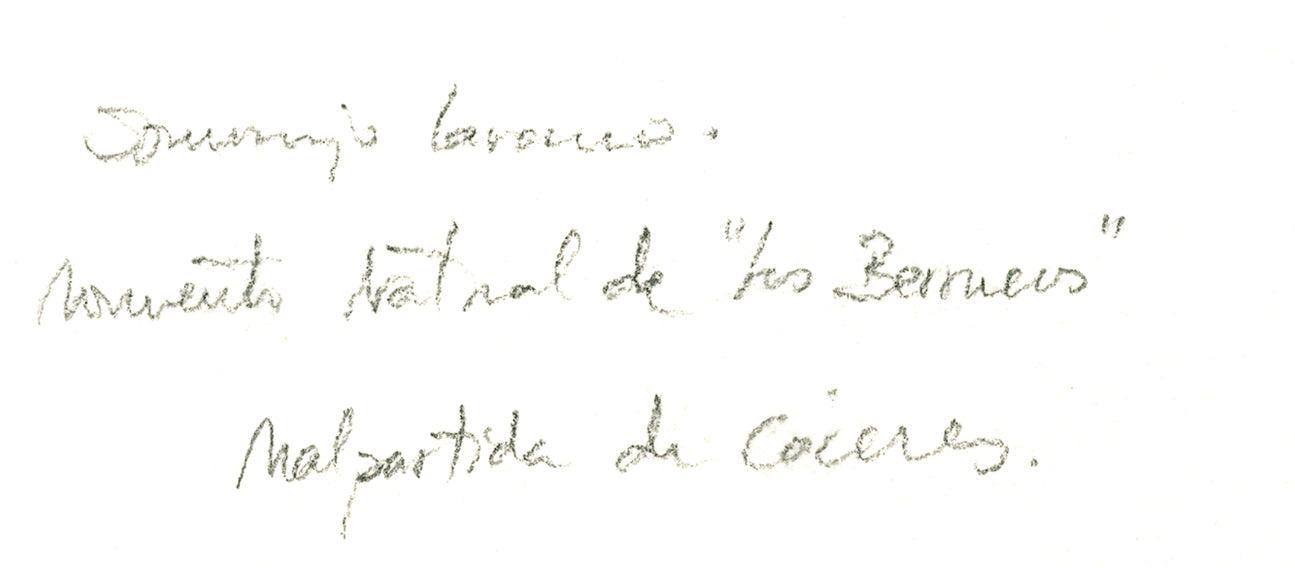 Domingo
Momento Natural de "Los Barruecos"
Malpartida de Cáceres.